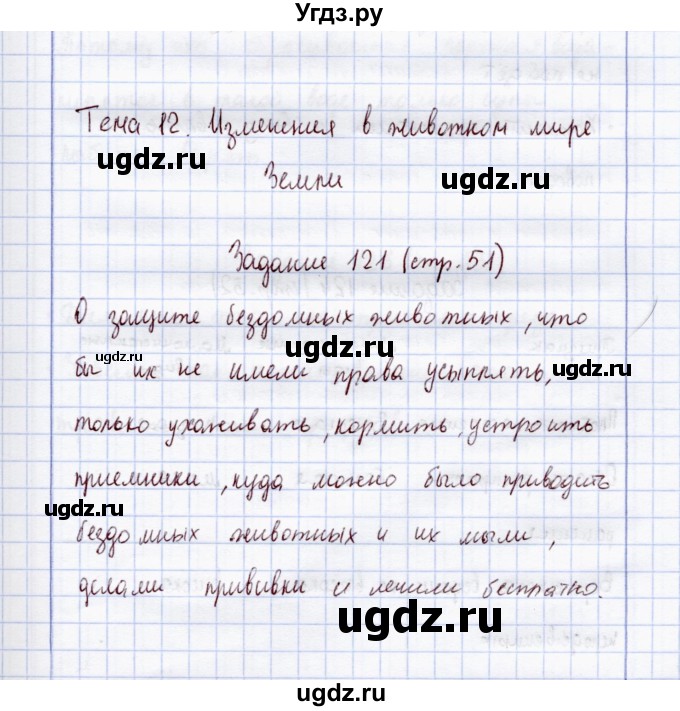 Угдз.ру
Тема 12. Изменения в животном мире
ugdz.ru
Земли
ugdz.ru
Задание 121 (стр. 51)
О защите бездомных животных, что
ugdz.ru
ugdz.ru
бы их не имели права усыплять,
ugdz.ru
только ухаживать, кормить, устроить
приемники, куда можно было приводить
ugdz.ru
бездомных животных и их мыли,
делали прививки и лечили бесплатно.
ugdz.ru
ugdz.ru